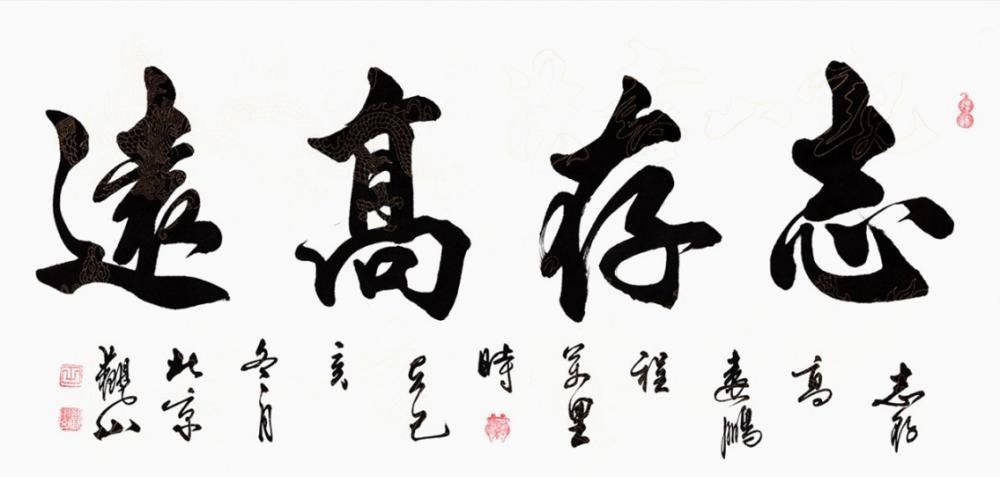 志存高遠
志存高遠鵬程萬里時在己亥冬月北京觀山